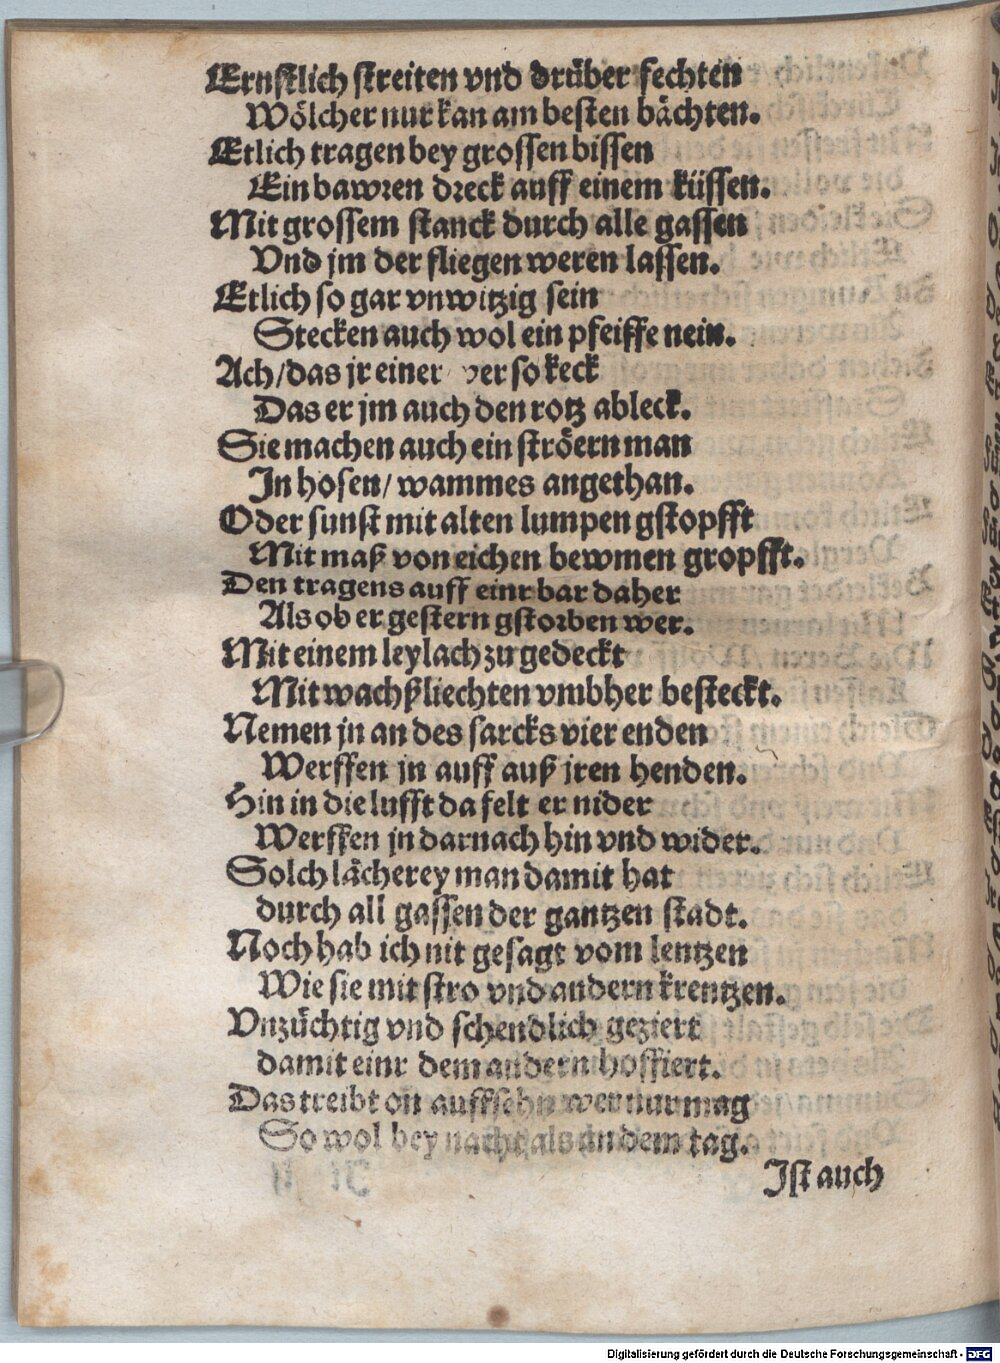 Ernstlich streiten vnd drüber fechten
Wölcher nur kan am besten bächten.
Etlich tragen bey grossen bissen
Ein bawren dreck auff einem küssen.
Mit grossem stanck durch alle gassen
Vnd jm der fliegen weren lassen.
Etlich so gar vnwitzig sein
Stecken auch wol ein pfeiffe nein.
Ach/das jr einer wer so keck
Das er jm auch den rotz ableck.
Sie machen auch ein ströern man
In hosen/wammes angethan.
Oder sunst mit alten lumpen gstopfft
Mit maß von eichen bewmen gropfft.
Den tragens auff einr bar daher
Als ob er gestern gstorben wer.
Mit einem leylach zugedeckt
Mit wachßliechten vmbher besteckt.
Nemen jn an des sarcks vier enden
Werffen jn auff auß jren henden.
Hin in die lufft da felt er nider
Werffen jn darnach hin vnd wider.
Solch lächerey man damit hat
durch all gassen der gantzen stadt.
Noch hab ich nit gesagt vom lentzen
Wie sie mit stro vnd andern krentzen.
Vnzüchtig vnd schendlich geziert
damit einr dem andern hoffiert.
Das treibt on auffsehn wer nur mag
So wol bey nacht als an dem tag.
Ist auch
Digitalisierung gefördert durch die Deutsche Forschungsgemeinschaft - DFG